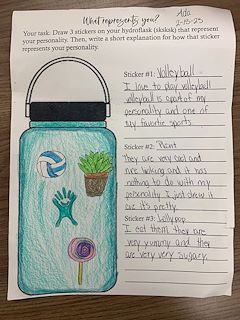 Ada
2-13-25
What represents you?
Your task: Draw 3 stickers on your hydroflask (sksksk) that represent
your personality. Then, write a short explanation for how that sticker
represents your personality.
Sticker #1: Volleyball
I love to play volleyball
volleyball is apart of my
personality and one of
my favorite sports.
Sticker #2: Plant
They are very cool and
nice looking and it has
nothing to do with my
personality I just drew it
bc it's pretty.
Sticker #3: Lollypop
I eat them they are
very yummy and they
are very very sugary.